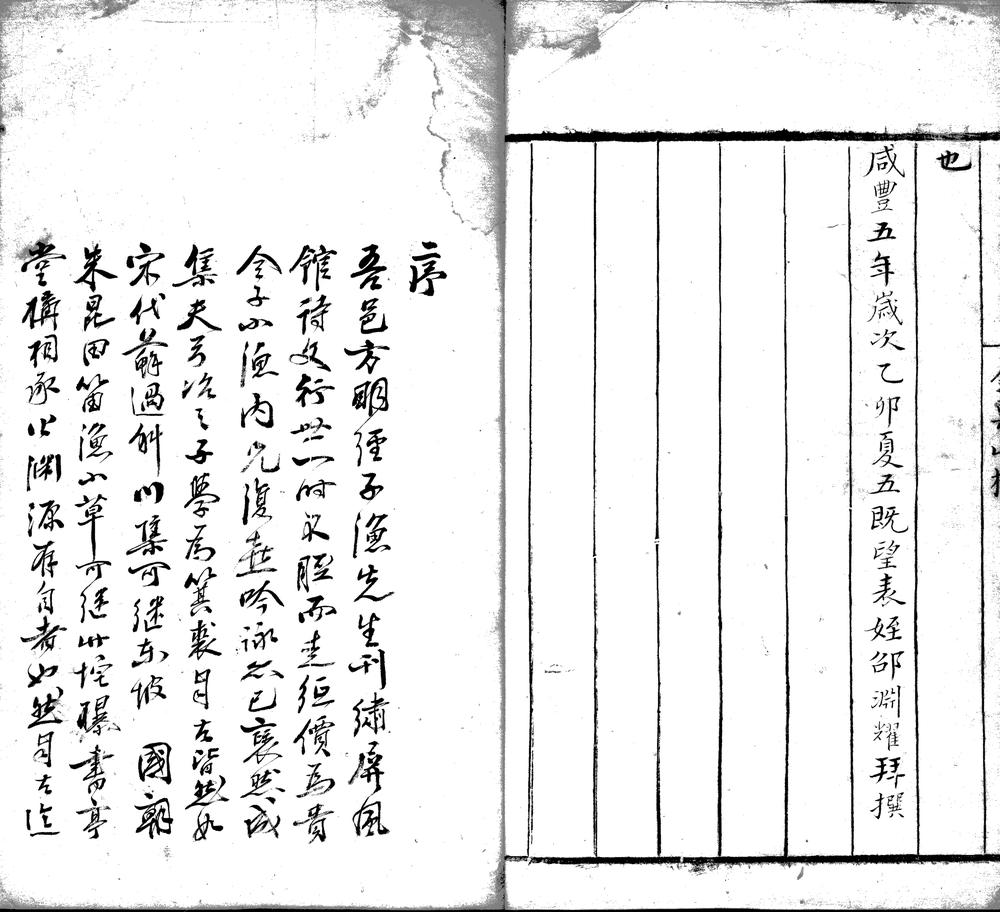 也
咸豐五年歲次乙卯夏五既望表姪邵淵耀拜撰
序
吾邑方明經子漁先生刊繡屏風
館詩文行世一時不脛而走紙價爲貴
令子小漁內兄復喜吟詠亦已裒然成
集夫弓冶之子學爲箕裘自古皆然如
宋代蘇過斜川集可繼東坡 國朝
朱昆田笛漁小草可繼竹垞曝書亭
堂構相承以淵源有自者也然自古迄